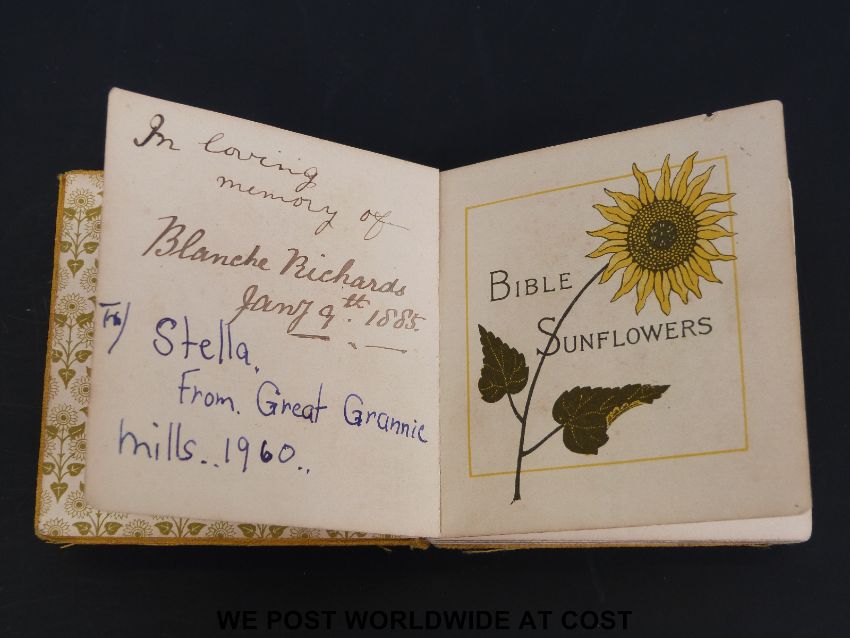 In loving
memory of
Blanche Richards
Jany 9th. 1885.
To/ Stella.
From. Great Grannie
Mills..1960..
BIBLE
SUNFLOWERS
WE POST WORLDWIDE AT COST